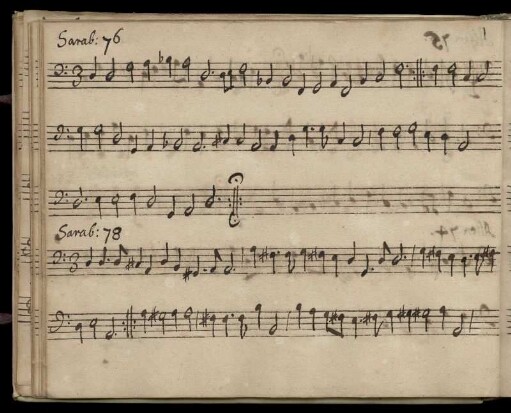 Sarab: 76
Sarab: 78